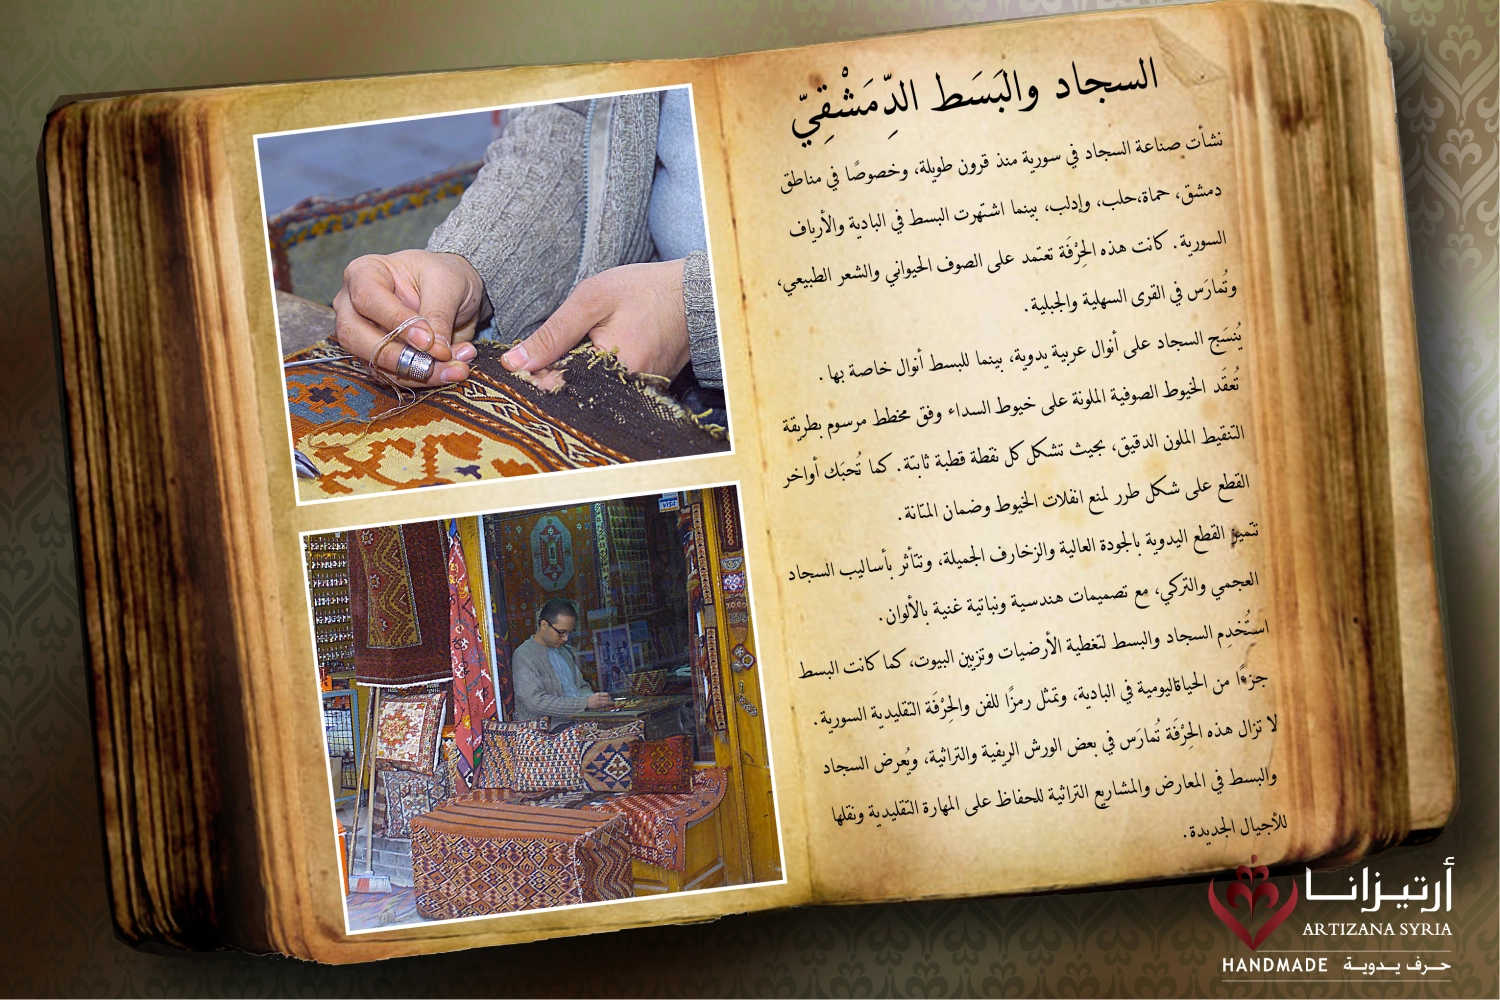 السجاد والبَسَط الدِّمَشْقِيّ
نشأت صناعة السجاد في سورية منذ قرون طويلة، وخصوصًا في مناطق
دمشق، حماة،حلب، وإدلب، بينما اشتهرت البسط في البادية والأرياف
السورية. كانت هذه الحِرْفَة تعتمد على الصوف الحيواني والشعر الطبيعي،
وتُمارَس في القرى السهلية والجبلية.
يُنسَج السجاد على أنوال عربية يدوية، بينما للبسط أنوال خاصة بها .
تُعقَد الخيوط الصوفية الملونة على خيوط السداء وفق مخطط مرسوم بطريقة
التنقيط الملون الدقيق، بحيث تشكل كل نقطة قطبة ثابتة. كما تُحبَك أواخر
القطع على شكل طرر لمنع انفلات الخيوط وضمان المتانة.
تتميز القطع اليدوية بالجودة العالية والزخارف الجميلة، وتتأثر بأساليب السجاد
العجمي والتركي، مع تصميمات هندسية ونباتية غنية بالألوان.
استُخدِم السجاد والبسط لتغطية الأرضيات وتزيين البيوت، كما كانت البسط
جزءًا من الحياةاليومية في البادية، وتمثل رمزًا للفن والحِرْفَة التقليدية السورية.
لا تزال هذه الحِرْفَة تُمارَس في بعض الورش الريفية والتراثية، ويُعرض السجاد
والبسط في المعارض والمشاريع التراثية للحفاظ على المهارة التقليدية ونقلها
للأجيال الجديدة.
VISA
أرتيزانا
ARTIZANA SYRIA
HANDMADE حرف يدوية